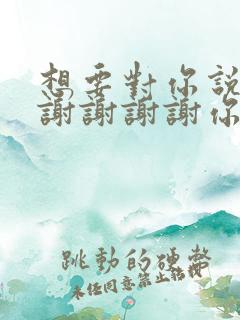 想要對你說
謝謝謝謝你
跳動的硬幣
未經同意禁止轉載